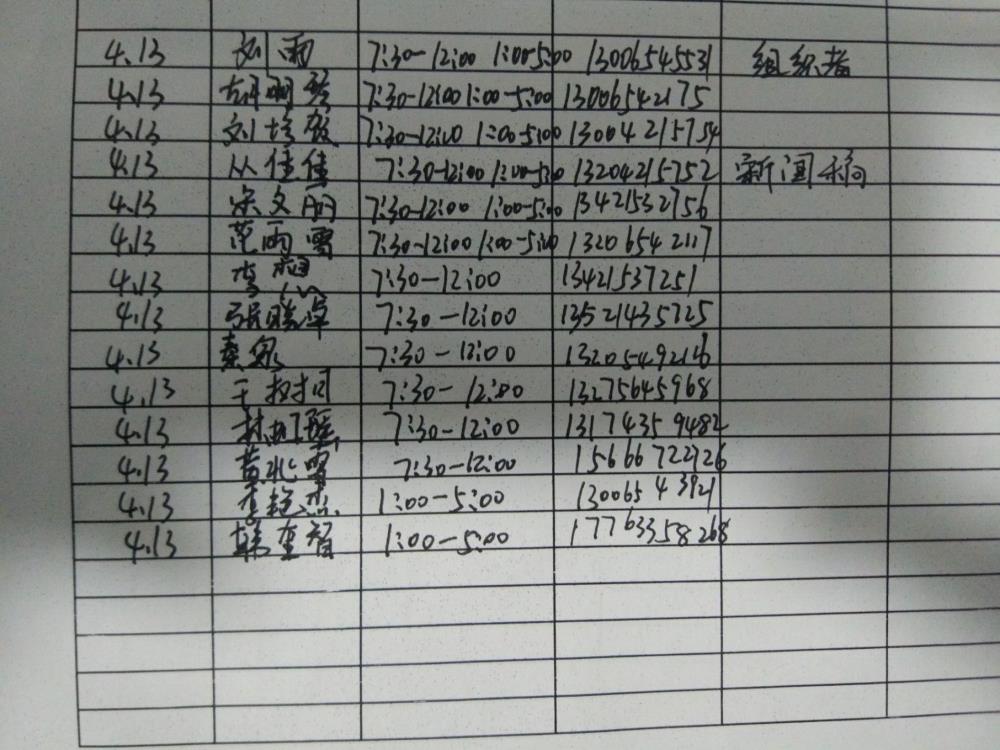 4.13 刘雨 7:30-12:00 1:00-5:00 13006545531 组织者
4.13 胡丽琴 7:30-12:00 1:00-5:00 13006542175
4.13 刘培 7:30-12:00 1:00-5:00 13004215754
4.13 从佳佳 7:30-12:00 1:00-5:00 13204215752 新闻稿
4.13 宋文丽 7:30-12:00 1:00-5:00 13421532756
4.13 范雨雪 7:30-12:00 1:00-5:00 13206542117
4.13 李想 7:30-12:00 13421537251
4.13 张晓卓 7:30-12:00 13521435725
4.13 秦 7:30-12:00 13205492116
4.13 7:30-12:00 13275645968
4.13 7:30-12:00 13174359482
4.13 黄北雪 7:30-12:00 15666722926
4.13 李艳杰 1:00-5:00 13006543921
4.13 韩奎智 1:00-5:00 17763358268